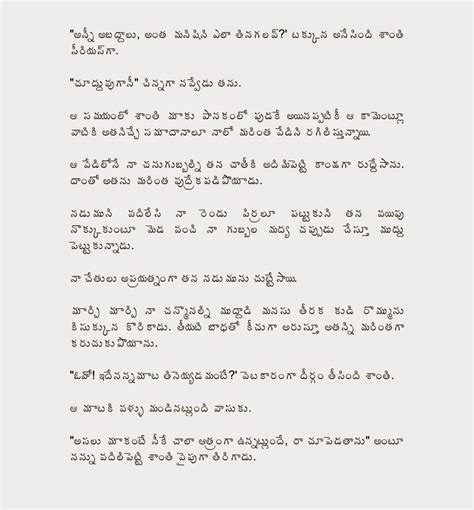 "అన్నీ అబద్దాలు, అంత మనిషిని ఎలా తినగలవ్?' టక్కున అనేసింది శాంతి
సీరియస్‌గా.
"చూద్దువుగానీ" చిన్నగా నవ్వేడు తను.
ఆ సమయంలో శాంతి మాకు పానకంలో పుడకే అయినప్పటికీ ఆ కామెంట్లూ
వాటికి అతనిచ్చే సమాదానాలూ నాలో మరింత పేడిని రగిలిస్తున్నాయి.
ఆ పేడిలోనే నా చనుగుబ్బల్ని తన చాతీకి అదిమిపెట్టి కాండగా రుద్దేసాను.
దాంతో అతను మరింత పుద్రేకపడిపొయాడు.
నడుముని పదిలేసి నా రెండు పిర్రలూ పట్టుకుని తన వయిపు
నొక్కుకుంటూ మెడ వంచి నా గుబ్బల మద్య చప్పుడు చేస్తూ ముద్దు
పెట్టుకున్నాడు.
నా చేతులు అప్రయత్నంగా తన నడుమును చుట్టేసాయి.
మార్చి మార్చి నా చన్మొనల్ని ముద్దాడి మనసు తీరక కుడి రొమ్మును
కిసుక్కున కొరికాడు. తీయటి బాధతో కీచుగా అరుస్తూ అతన్ని మరింతగా
కరుచుకుపొయాను.
"ఓవో! ఇదేనన్నమాట తినెయ్యడమంటే?' పెటకారంగా దీర్గం తీసింది శాంతి.
ఆ మాటకి వళ్ళు మండినట్లుంది వాసుకు.
"అసలు మాకంటే నీకే చాలా ఆత్రంగా ఉన్నట్లుందే, రా చూపెడతాను" అంటూ
నన్ను పదిలిపెట్టి శాంతి పైపుగా తిరిగాడు.